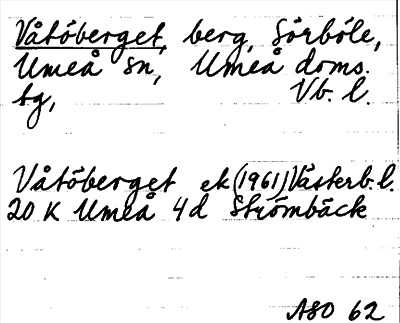 Våtöberget, berg, Sörböle,
Umeå sn, Umeå doms.
tg, Vb. l.
Våtöberget ek (1961) Västerb. l.
20 K Umeå 4d Strömbäck
ASO 62